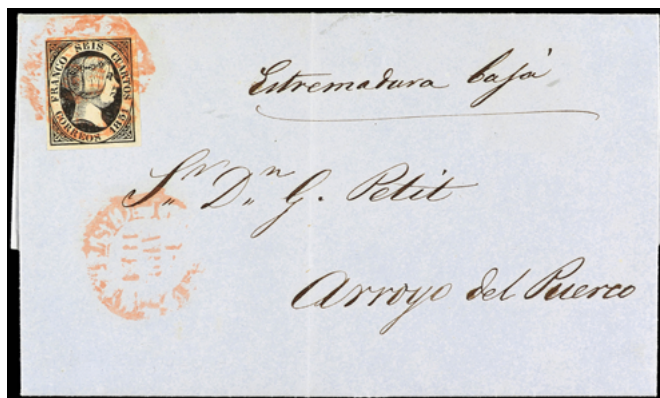 FRANCO SEIS CUARTOS
CORREOS 1851
Estremadura bajá
Sr. Dn. G. Petit
Arroyo del Puerco